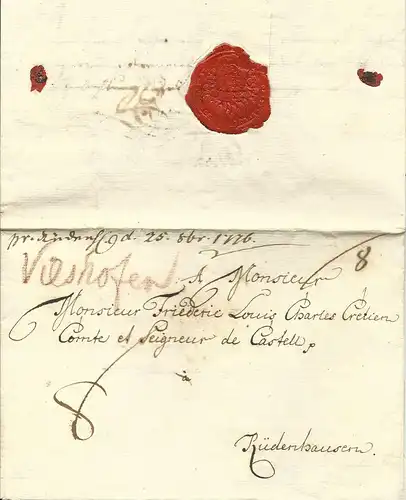 d. 25. 8br. 1776.
Vilshofen
8
A Monsieur
Monsieur Friederic Louis Charles Cretien
Comte et Seigneur de Castell
à
8
Rüdenhausen.